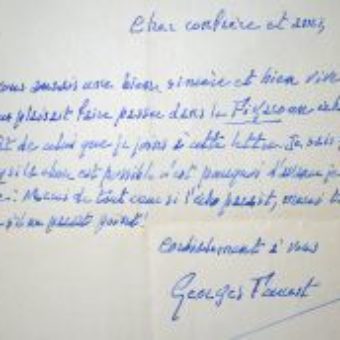 Cher confrère et ami,
vous aurais une bien sincère et bien vive
plaisait faire passer dans le Figaro un écho
de celui que je joins à cette lettre. Je sais
si la chose est possible c'est pourquoi
Merci de tout cœur si l'écho paraît, merci
s'il ne paraît point !
Cordialement à vous
Georges